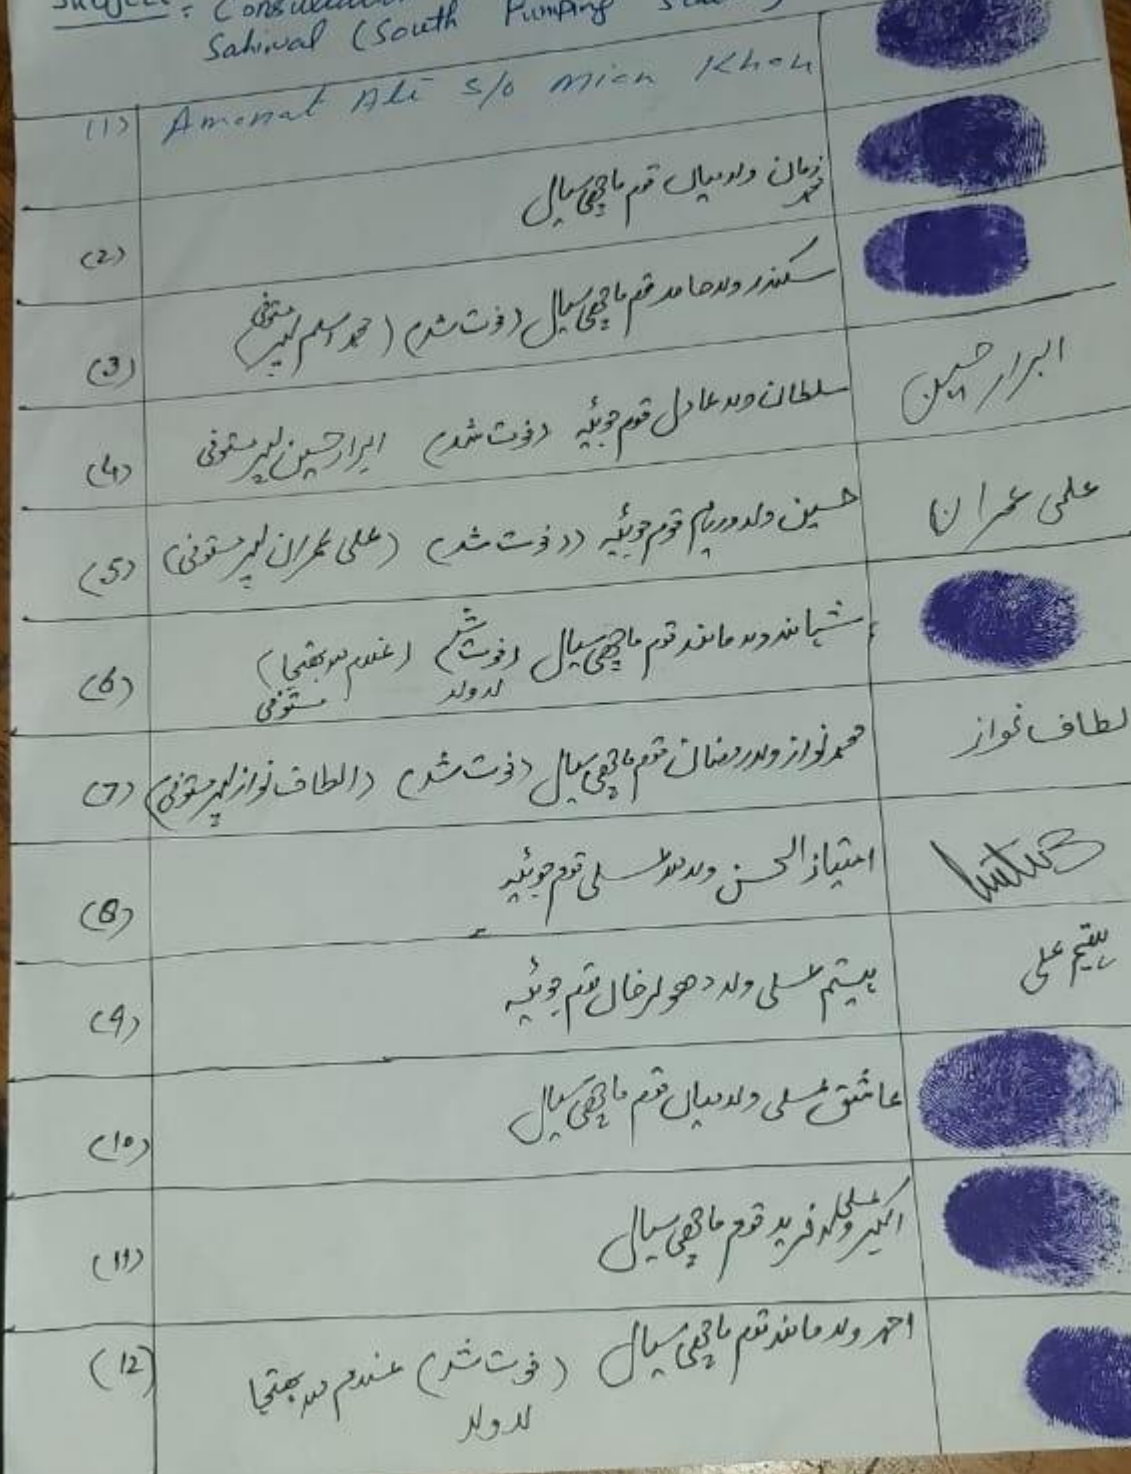 Subject :
Sahiwal (South Pumping
(1) Amanat Ali s/o Mian Khan
زمان ولد میاں قوم ماچھی سیال
محمد
(2)
سکندر ولد حامد قوم ماچھی سیال (فوت شدہ) (محمد اسلم پسر متوفی)
(3)
سلطان ولد عادل قوم جوئیہ (فوت شدہ) ابرار حسین پسر متوفی ابرار حسین
(4)
حسین ولد وریام قوم جوئیہ (فوت شدہ) (علی عمران پسر متوفی) علی عمران
(5)
ولد ماند قوم ماچھی سیال (فوت شدہ) بھتیجا)
لاولد متوفی
(6)
محمد نواز ولد رمضان قوم ماچھی سیال (فوت شدہ) (الطاف نواز پسر متوفی) لطاف نواز
(7)
امتیاز الحسن ولد قوم جوئیہ
(8)
علی ولد قوم جوئیہ علی
(9)
عاشق علی ولد میاں قوم ماچھی سیال
(10)
اکبر علی ولد فرید قوم ماچھی سیال
(11)
احمد ولد ماند قوم ماچھی سیال (فوت شدہ) بھتیجا
لاولد
(12)